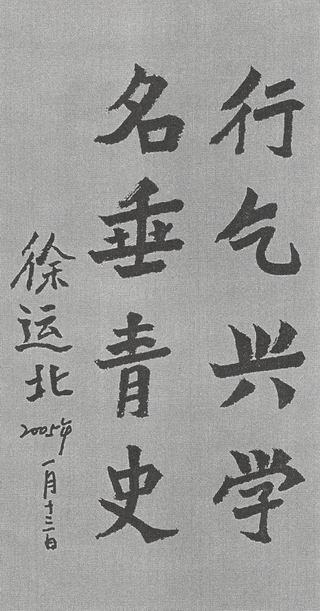 行乞兴学
名垂青史
徐运北
2005年
一月十三日